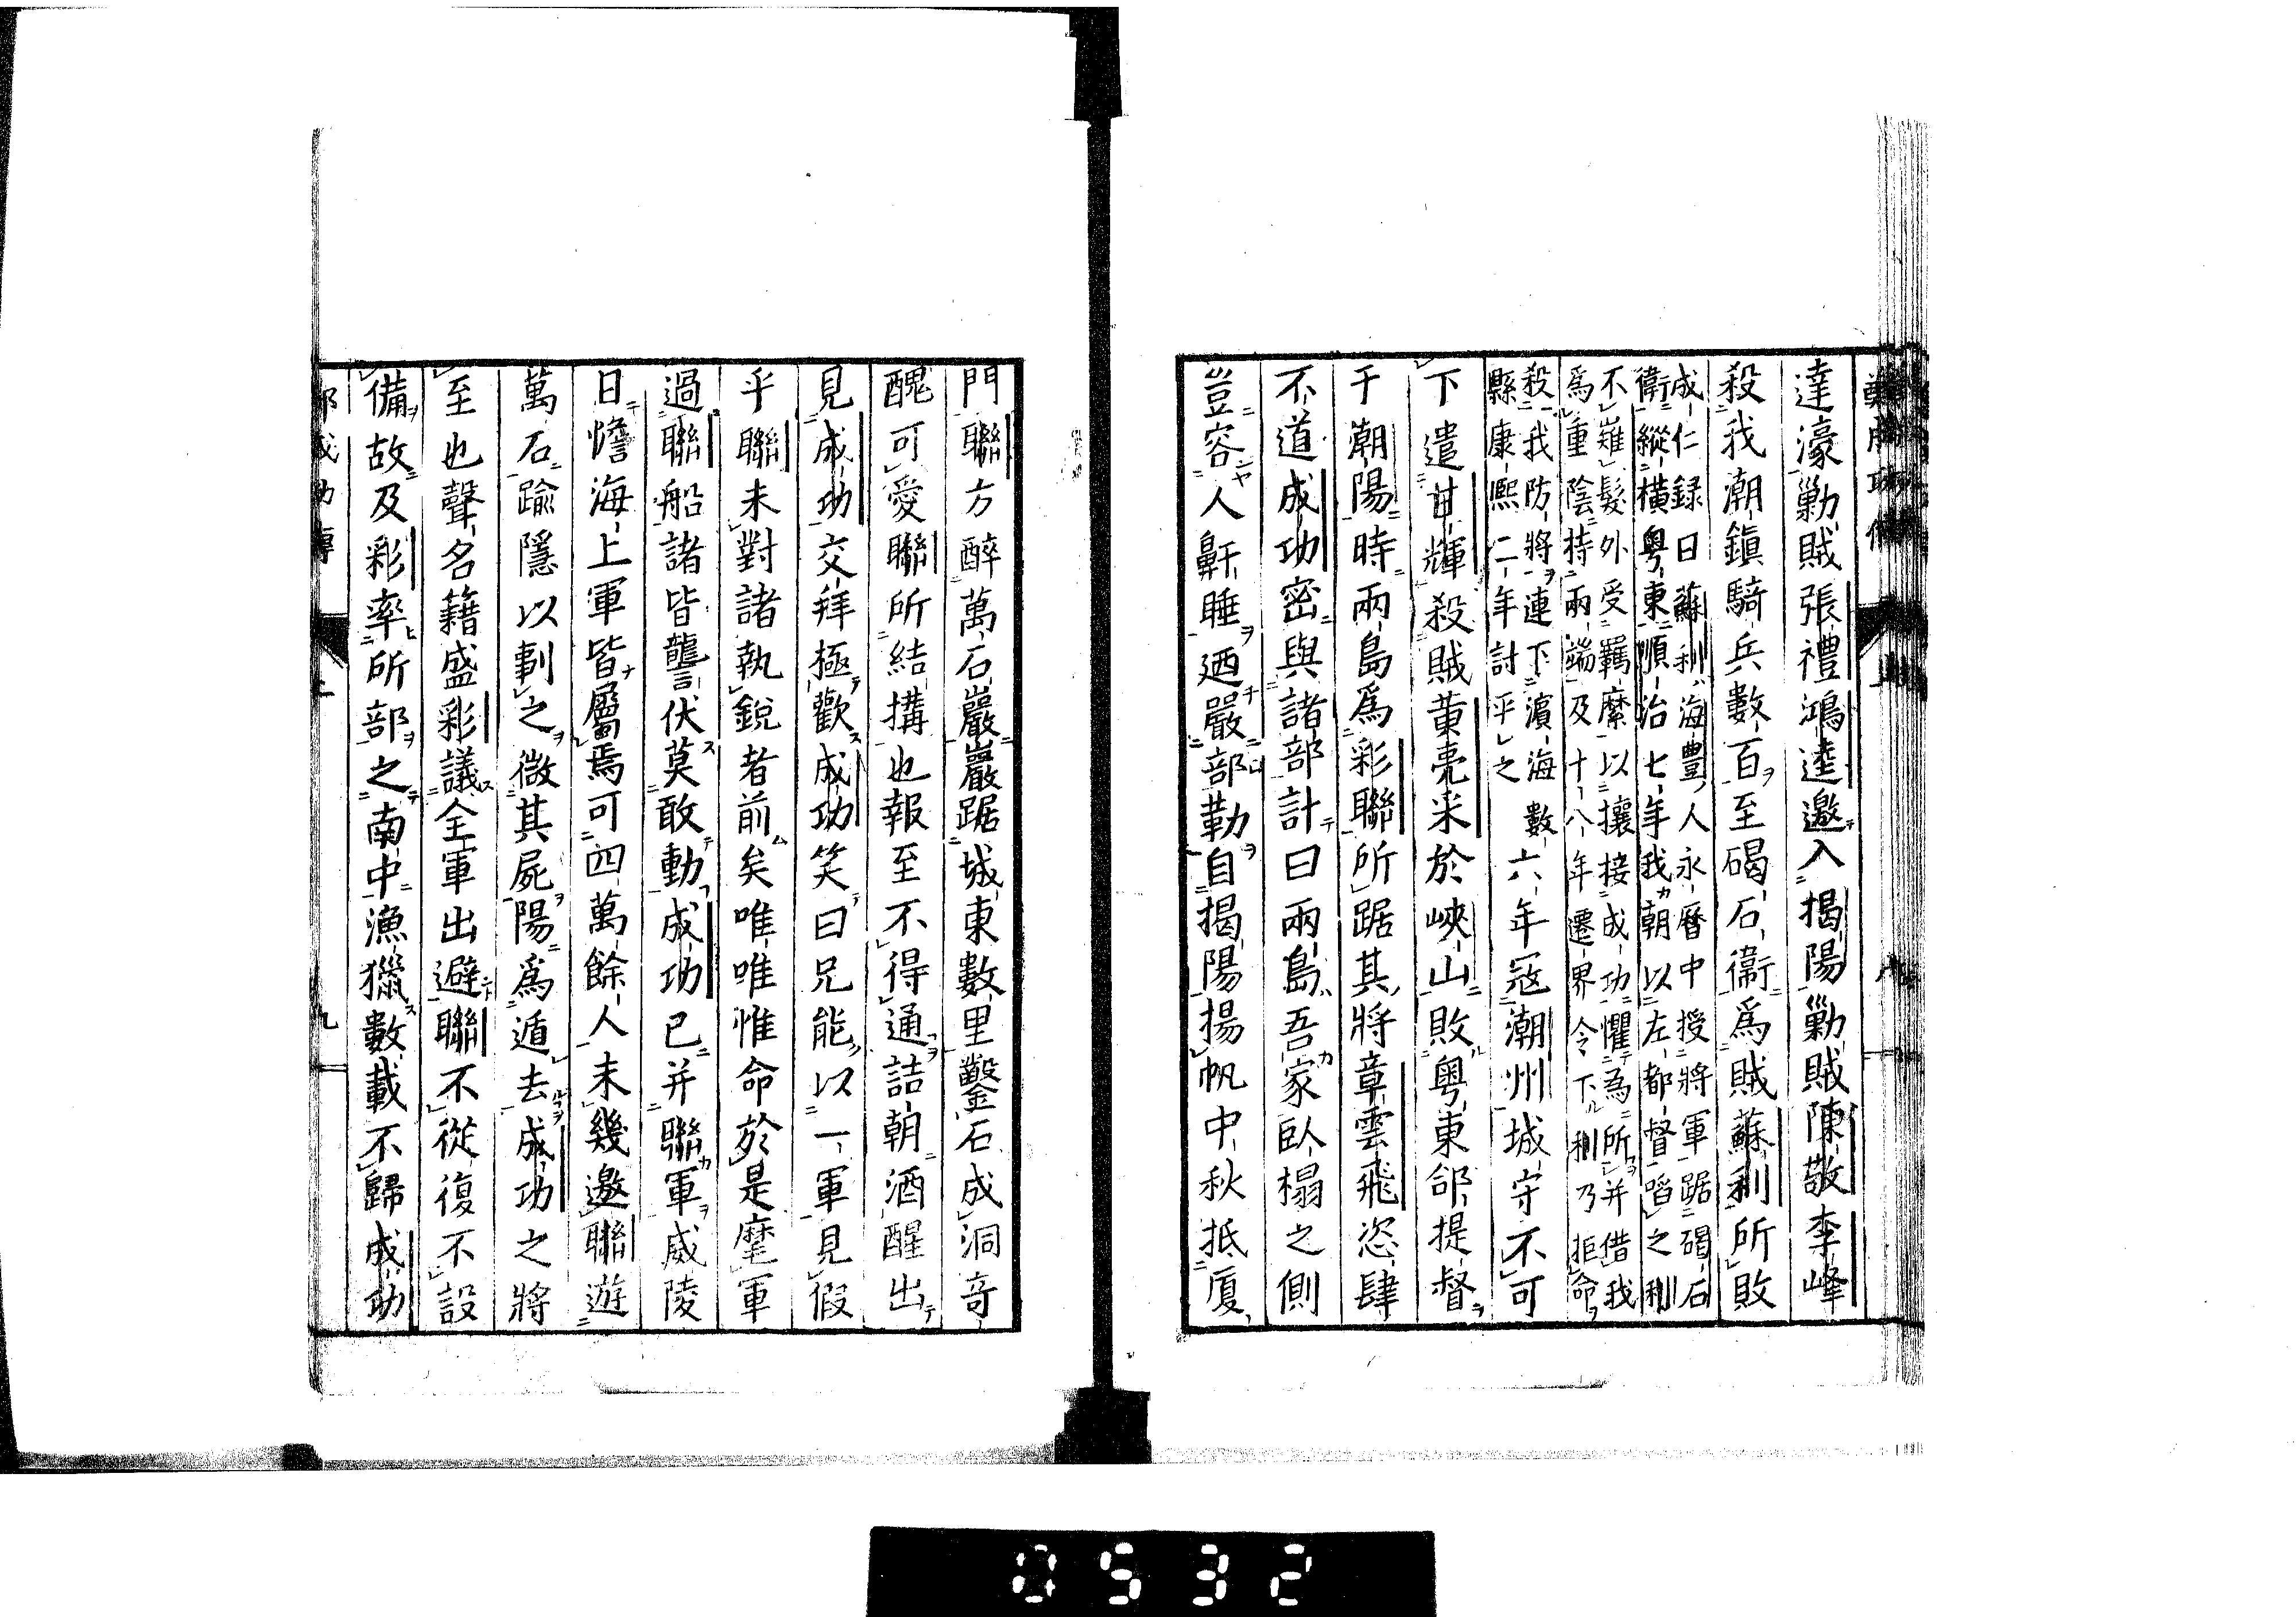 達濠勦賊張禮鴻逵邀入揭陽勦賊陳敬李峰
殺我潮鎮騎兵數百至碣石衞爲賊蘇利所敗
成仁録曰蘇利海豊人永曆中授將軍踞碣石
衞縱橫粵東順治七年我朝以左都督啗之利
不薙髮外受羈縻以攘接成功懼爲所并借我
爲重陰持兩端及十八年遷界令下利乃拒命
殺我防將連下濵海數
縣康熙二年討平之
六年冦潮州城守不可
下遣甘輝殺賊黄亮采於峽山敗粵東郃提督
于潮陽時兩島爲彩聯所踞其將章雲飛恣肆
不道成功密與諸部計曰兩島吾家臥榻之側
豈容人鼾睡廼嚴部勒自揭陽揚帆中秋抵厦
門聯方醉萬石巖巖踞城東數里鑿石成洞竒
醜可愛聯所結搆也報至不得通詰朝酒醒出
見成功交拜極歡成功笑曰兄能以一軍見假
乎聯未對諸執鋭者前矣唯唯惟命於是麾軍
過聯船諸皆讋伏莫敢動成功已并聯軍威陵
日憺海上軍皆屬焉可四萬餘人未幾邀聯遊
萬石踰隱以剚之微其屍陽爲遁去成功之將
至也聲名籍盛彩議全軍出避聯不從復不設
備故及彩率所部之南中漁獵數載不歸成功